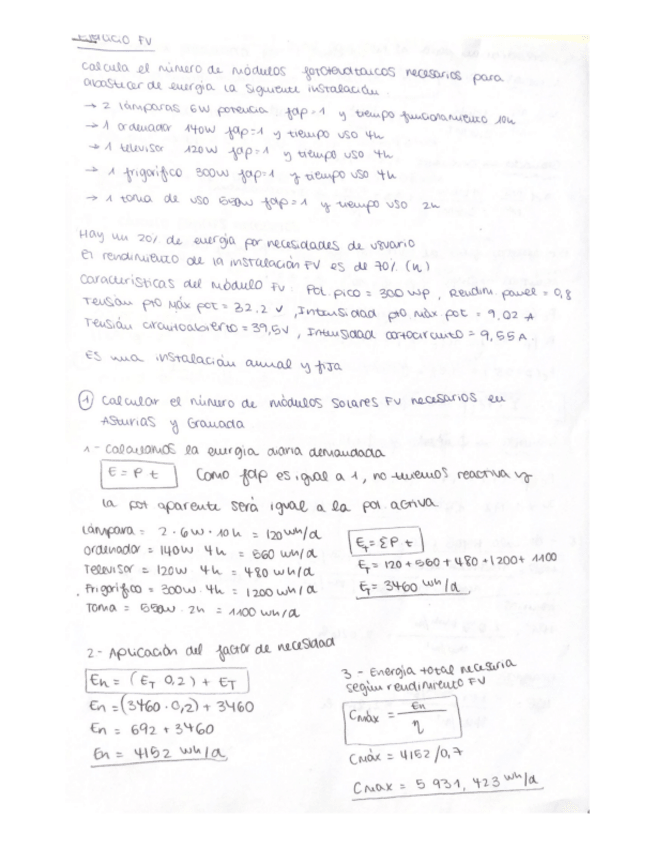 EJERCICIO FV
Calcula el número de módulos fotovoltaicos necesarios para
abastecer de energía la siguiente instalación.
→ 2 lámparas 6W potencia fdp=1 y tiempo funcionamiento 10h
→ 1 ordenador 140W fdp=1 y tiempo uso 4h
→ 1 televisor 120W fdp=1 y tiempo uso 4h
→ 1 frigorífico 300W fdp=1 y tiempo uso 4h
→ 1 toma de uso 550W fdp=1 y tiempo uso 2h
Hay un 20% de energía por necesidades de usuario
El rendimiento de la instalación FV es de 70% (η)
Características del módulo FV: Pot. pico = 300 Wp, Rendim. panel = 0,8
Tensión pto Máx pot = 32.2 V, Intensidad pto Máx pot = 9,02 A
Tensión circuito abierto = 39,5V, Intensidad cortocircuito = 9,55A.
Es una instalación anual y fija
① Calcular el número de módulos solares FV necesarios en
Asturias y Granada
1 - Calculamos la energía diaria demandada
E = P t Como fdp es igual a 1, no tenemos reactiva y
la pot aparente será igual a la pot activa.
Lámpara = 2 · 6W · 10h = 120 Wh/d
Ordenador = 140W 4h = 560 Wh/d
Televisor = 120W 4h = 480 Wh/d
Frigorífico = 300W · 4h = 1200 Wh/d
Toma = 550W · 2h = 1100 Wh/d
E_T = ΣP t
E_T = 120 + 560 + 480 + 1200 + 1100
E_T = 3460 Wh/d
2 - Aplicación del factor de necesidad
En = (E_T 0,2) + E_T
En = (3460 · 0,2) + 3460
En = 692 + 3460
En = 4152 Wh/d
3 - Energía total necesaria
según rendimiento FV
Cmáx = En / η
Cmáx = 4152/0,7
Cmax = 5 931, 423 Wh/d